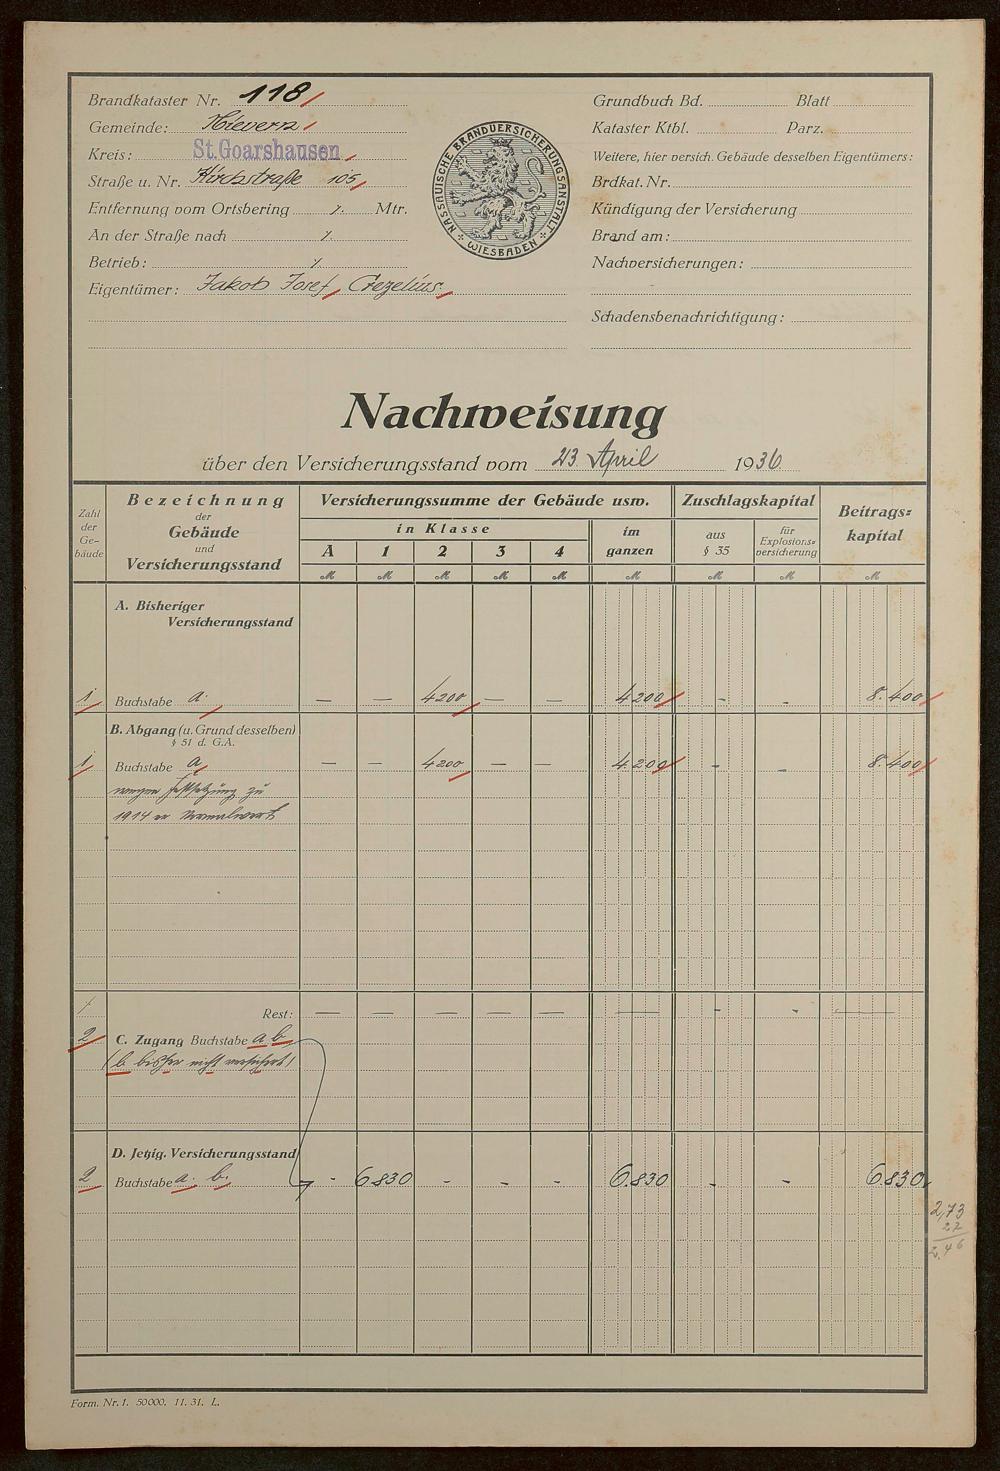 Brandkataster Nr. 118
Gemeinde: Nievern
Kreis: St. Goarshausen
Straße u. Nr. Kirchstraße 105
Entfernung vom Ortsbering ./. Mtr.
An der Straße nach ./.
Betrieb: ./.
Eigentümer: Jakob Josef Crezelius.
NASSAUISCHE BRANDVERSICHERUNGSANSTALT
WIESBADEN
Grundbuch Bd. Blatt
Kataster Ktbl. Parz.
Weitere, hier versich. Gebäude desselben Eigentümers:
Brdkat. Nr.
Kündigung der Versicherung
Brand am:
Nachversicherungen:
Schadensbenachrichtigung:
Nachweisung
über den Versicherungsstand vom 23. April 1936
Zahl der Ge- bäude
Bezeichnung der Gebäude und Versicherungsstand
Versicherungssumme der Gebäude usw.
in Klasse
A 1 2 3 4
im ganzen
Zuschlagskapital
aus § 35
für Explosions- versicherung
Beitrags- kapital
M M M M M M M M M
A. Bisheriger
Versicherungsstand
1 Buchstabe a. — — 4200 — — 4200 - - 8.400
B. Abgang (u. Grund desselben)
§ 51 d. G.A.
1 Buchstabe a — — 4200 — — 4.200 - - 8.400
wegen Festsetzung zu
1914 er Normalwert
/ Rest: — — — — — — - - —
2 C. Zugang Buchstabe a b
(b. bisher nicht versichert)
D. Jetzig. Versicherungsstand
2 Buchstabe a. b. - 6830 - - - 6.830 - - 6.830
2,73
27
2,46
Form. Nr. 1. 50000. 11. 31. L.